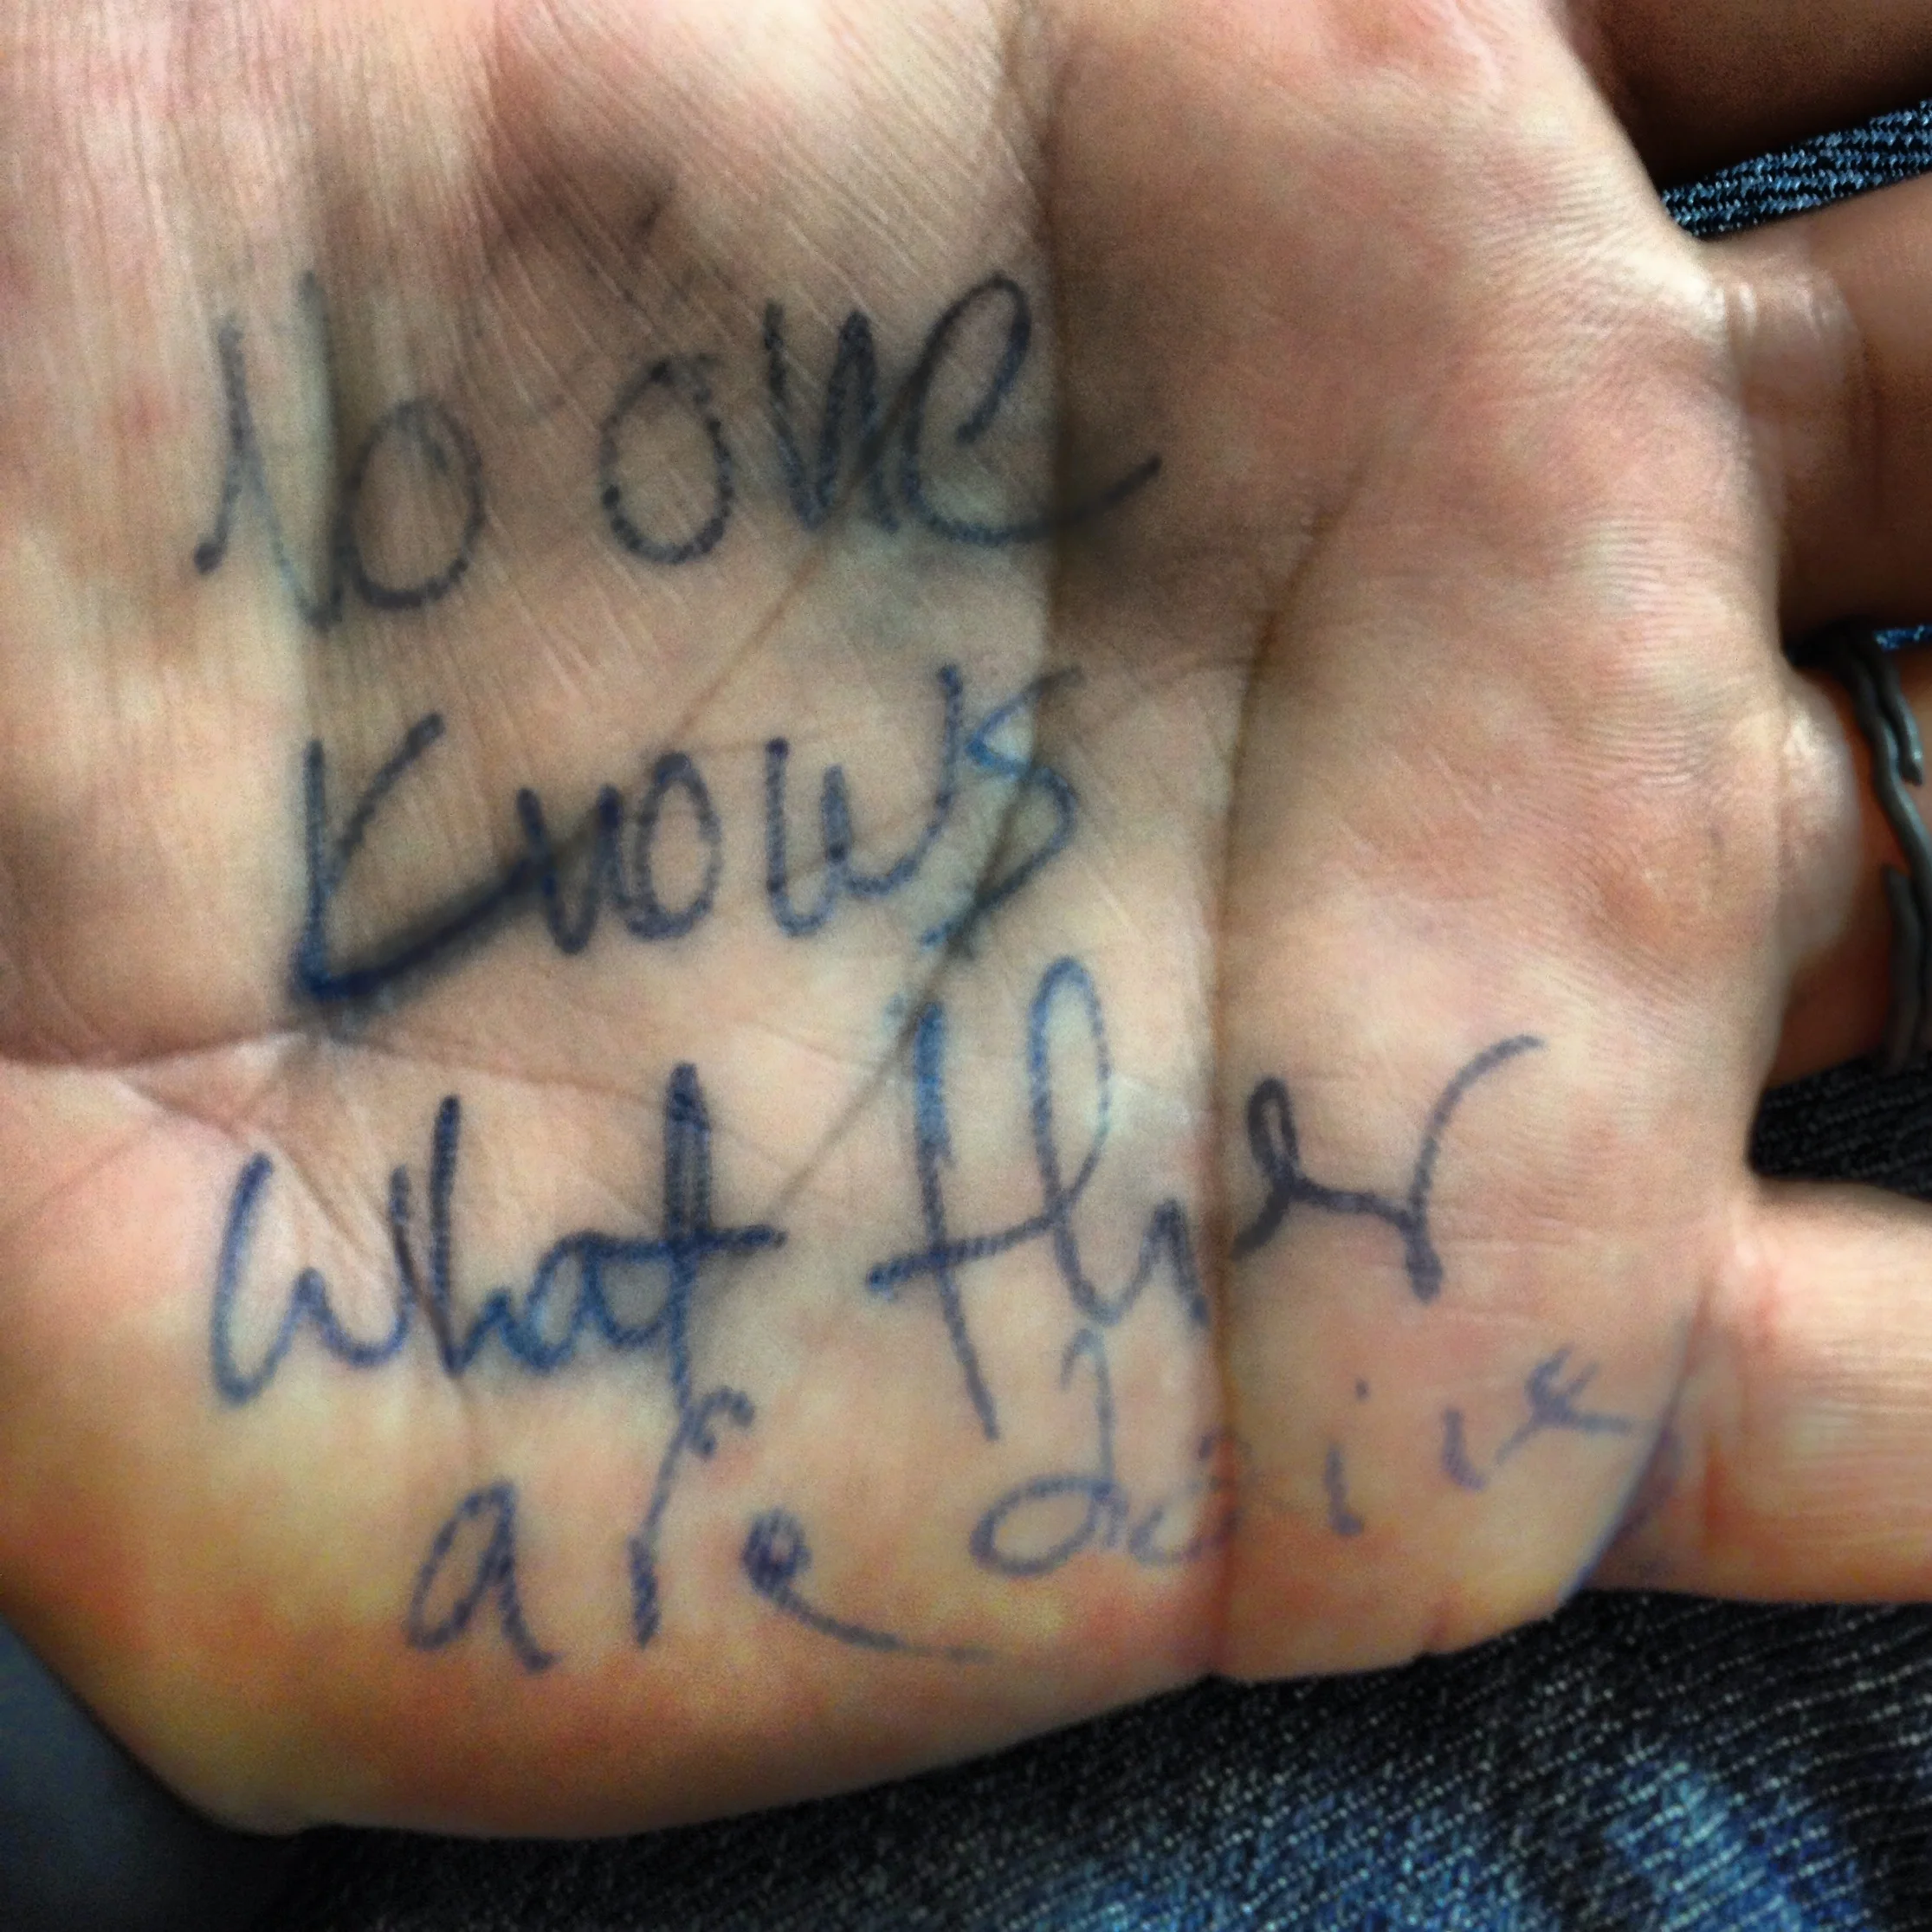 No one
Knows
What they
are doing